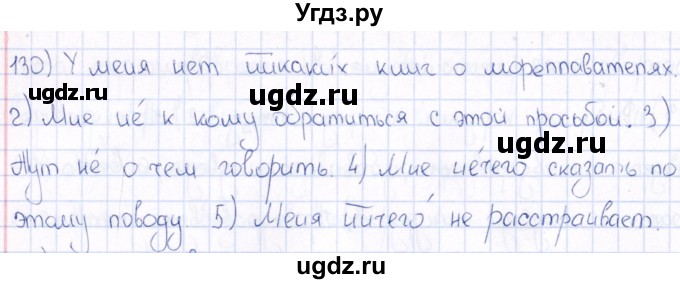 Угдз.ру
130) У меня нет никаки́х книг о мореплавателях.
ugdz.ru ugdz.ru
2) Мне не́ к кому обратиться с этой просьбой. 3)
Тут не́ о чем говорить. 4) Мне не́чего сказать по
ugdz.ru ugdz.ru
этому поводу. 5) Меня ничего́ не расстраивает.
ugdz.ru ugdz.ru